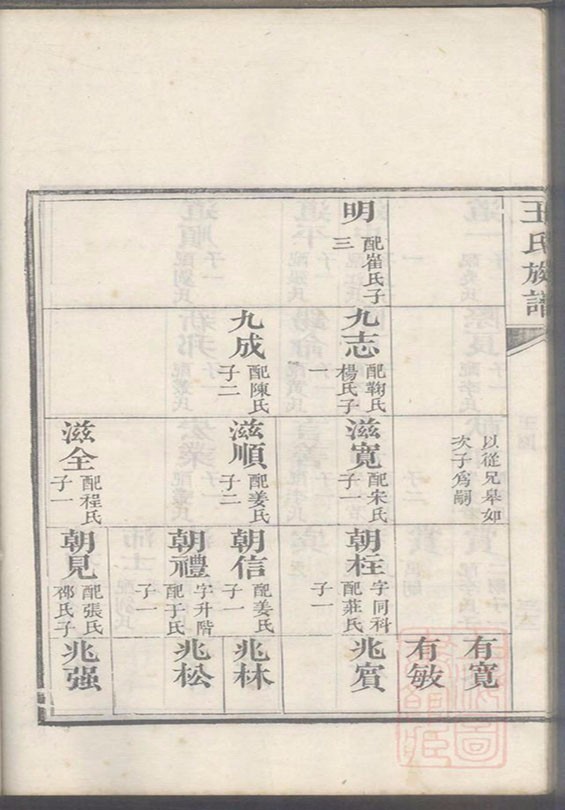 王氏族譜
明
配崔氏子
三
九志
配鞠氏
楊氏子
一
九成
配陳氏
子二
以從兄皋如
次子爲嗣
滋寬
配宋氏
子一
滋順
配姜氏
子二
滋全
配程氏
子一
朝桂
字同科
配莊氏
子一
朝信
配姜氏
子一
朝禮
字升階
配于氏
子一
朝見
配張氏
鄒氏子
一
有寬
有敏
兆賓
兆林
兆松
兆强